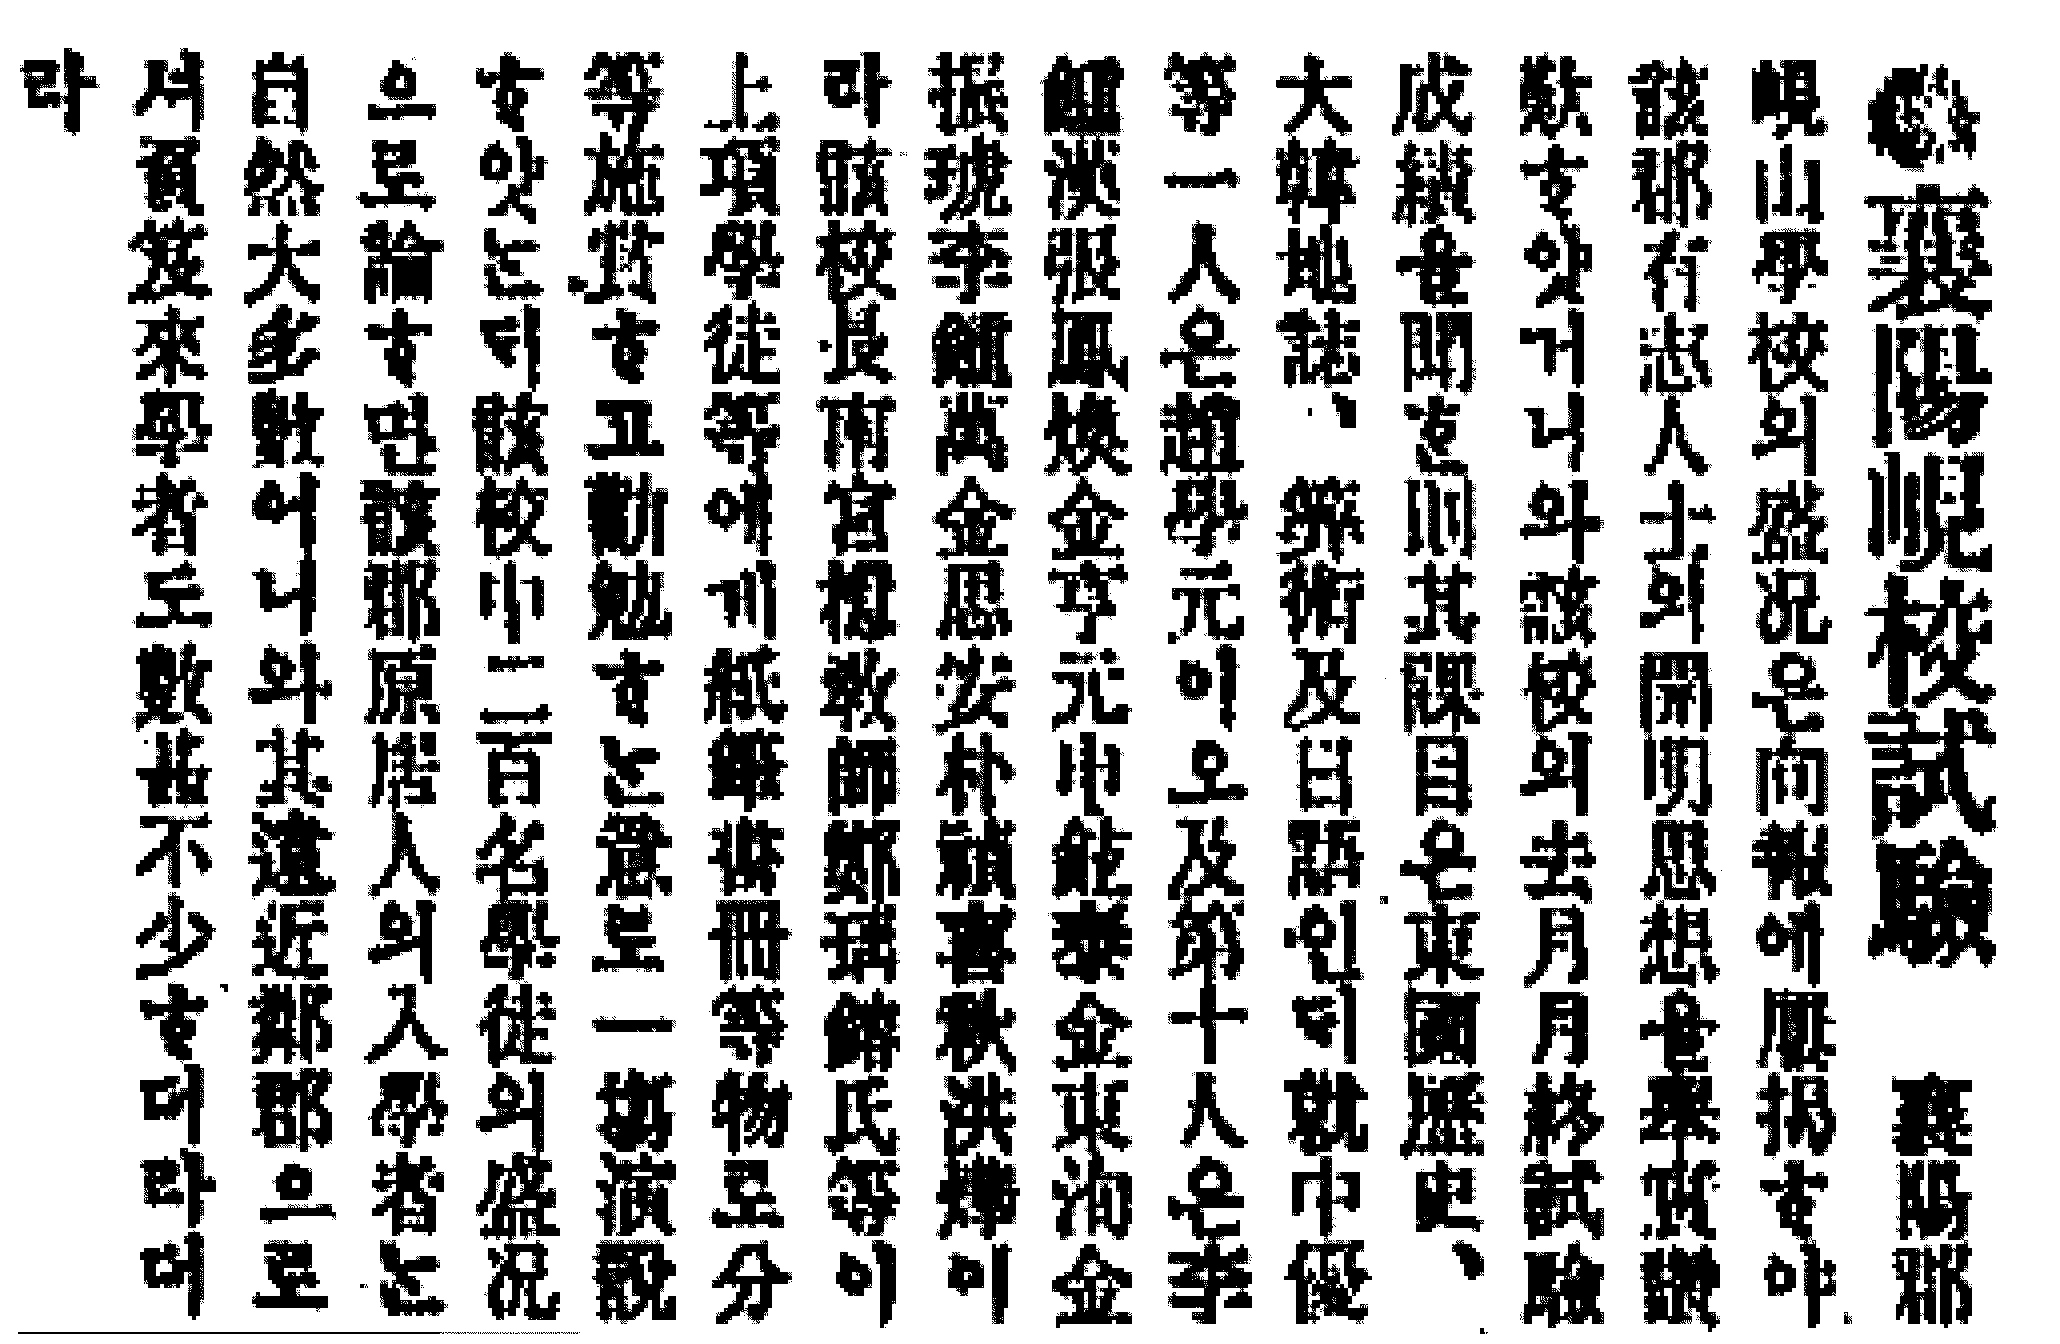 ●襄陽峴校試驗 襄陽郡
峴山學校의盛况은向報에顋揭ᄒᆞ야
該郡有志人士의開明思想을擧皆讚
歎ᄒᆞ얏거니와該校의去月月終試驗
成績을聞ᄒᆞᆫ則其課目은東國歷史、
大韓地誌、筭術及日語인ᄃᆡ就中優
等一人은趙學元이오及第十人은李
漢張鳳煥金亨元申鉉泰金東洵金
振琥李鍾萬金思安朴禎喜秋洪燁이
라該校長南宮檍敎師鄭 氏等이
上項學徒等에게紙鞋書冊等物로分
等施賞ᄒᆞ고勸勉ᄒᆞ는意로一塲演說
ᄒᆞ얏는ᄃᆡ該校中二百名學徒의盛况
으로論ᄒᆞ면該郡原居人의入學者는
自然大多數어니와其遠近鄰郡으로
셔負笈來學者도數甚不少ᄒᆞ더라더
라